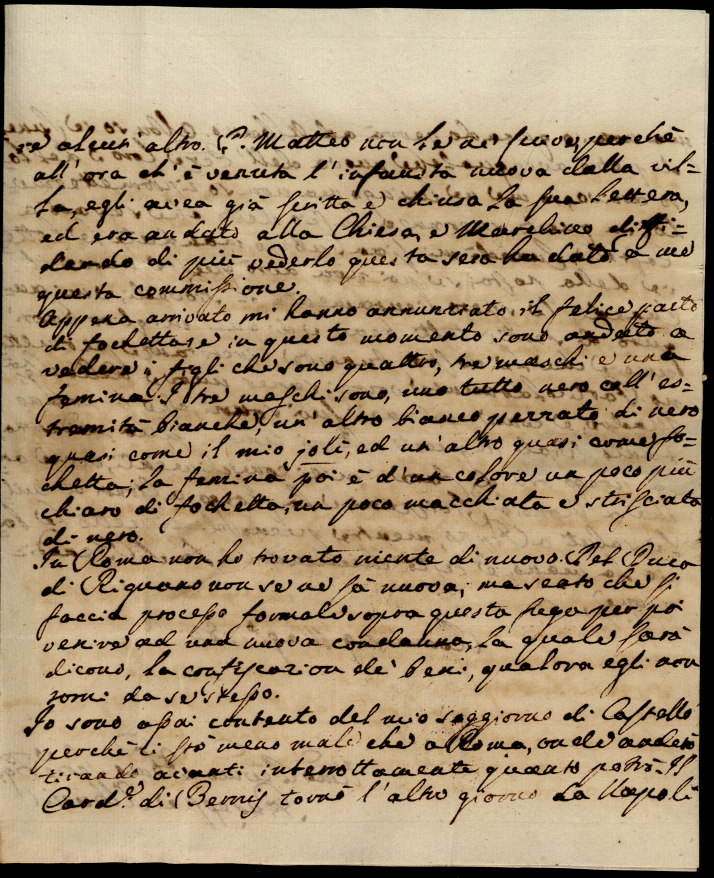 re alcun' altro. P. Matteo non Le ne scrive, perchè
all' ora ch' è venuta l' infausta nuova dalla vil=
la, egli avea già scritta e chiusa La sua Lettera,
ed era andato alla Chiesa, e Marchino diffi=
dando di più vederlo questa sera ha dato a me
questa commissione.
Appena arrivato mi hanno annunziato il felice parto
di fochetta, e in questo momento sono andato a
vedere i figli che sono quattro, tre maschi e una
femina. I tre maschi sono, uno tutto nero coll' es=
tremità bianche, un' altro bianco pezzato di nero
quasi come il mio jolì, ed un' altro quasi come fo=
chetta; La femina poi è d' un colore un poco più
chiaro di fochetta, un poco macchiata e strisciata
di nero.
In Roma non ho trovato niente di nuovo. Del Duca
di Rignano non se ne sà nuova; ma seato che si
faccia processo formale sopra questa fuga per poi
venire ad una nuova condanna, La quale sarà
dicono, La confiscazion de' beni, qualora egli non
torni da se stesso.
Io sono assai contento del mio soggiorno di Castello
perchè ci stò meno male che a Roma, onde anderò
tirando avanti interrottamente quanto potrò. Il
Card.e di Bernis tornò l' altro giorno da Napoli